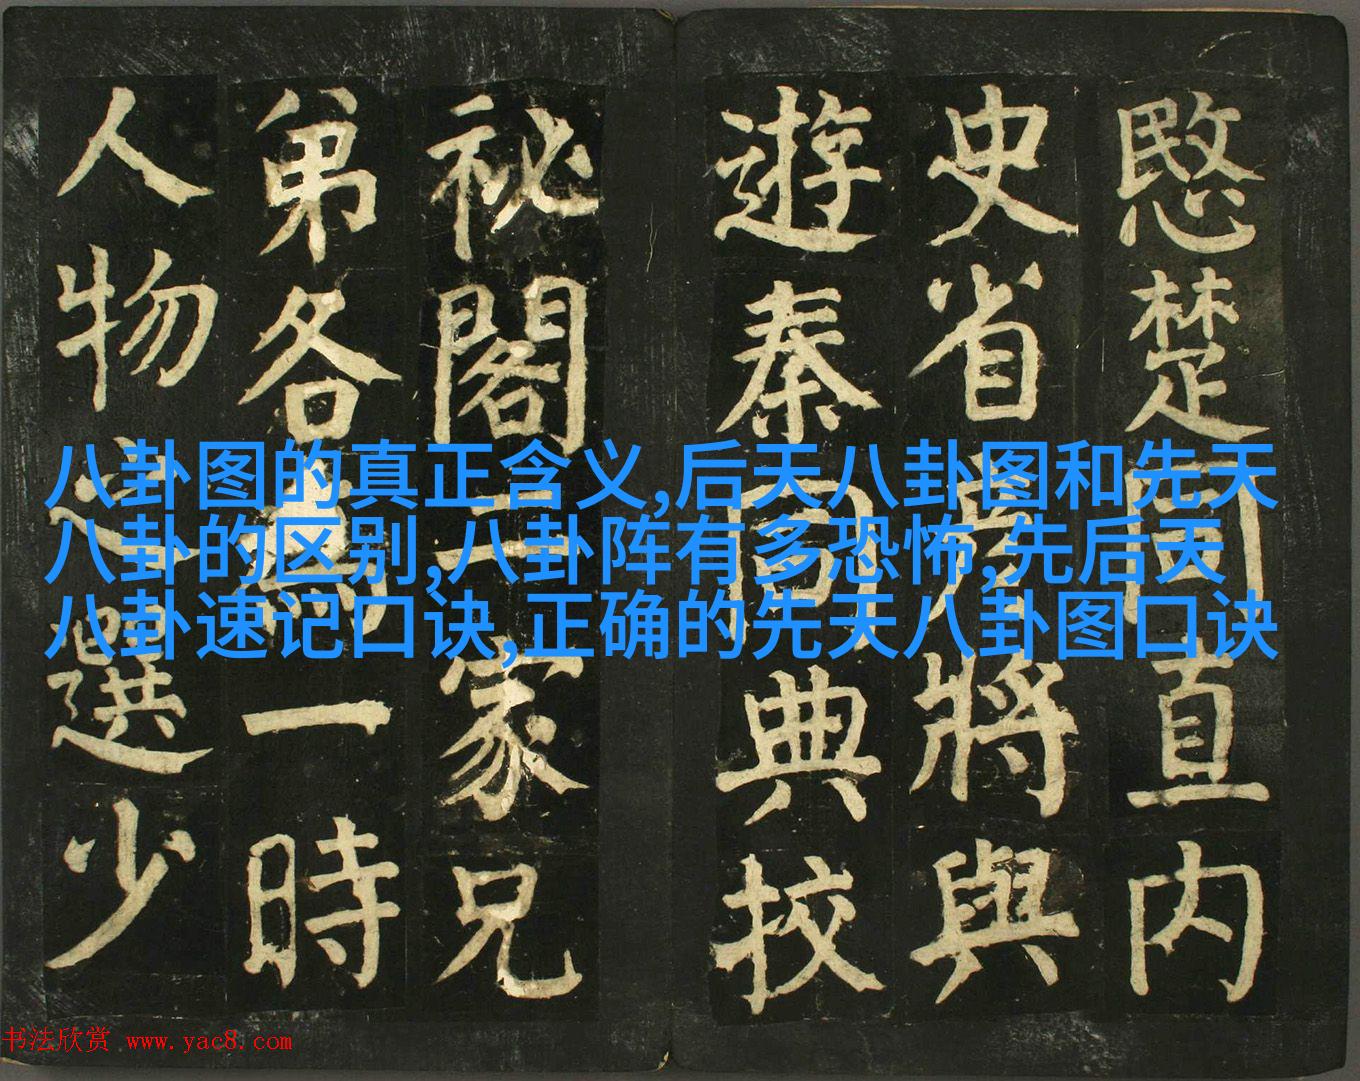 愍楚同直内
史省彦將與
遊秦同典校
祕閣二家兄
弟各為一時
人物之選少
八卦图的真正含义,后天八卦图和先天
八卦的区别,八卦阵有多恐怖,先后天
八卦速记口诀,正确的先天八卦图口诀
书法欣赏 www.yac8.com